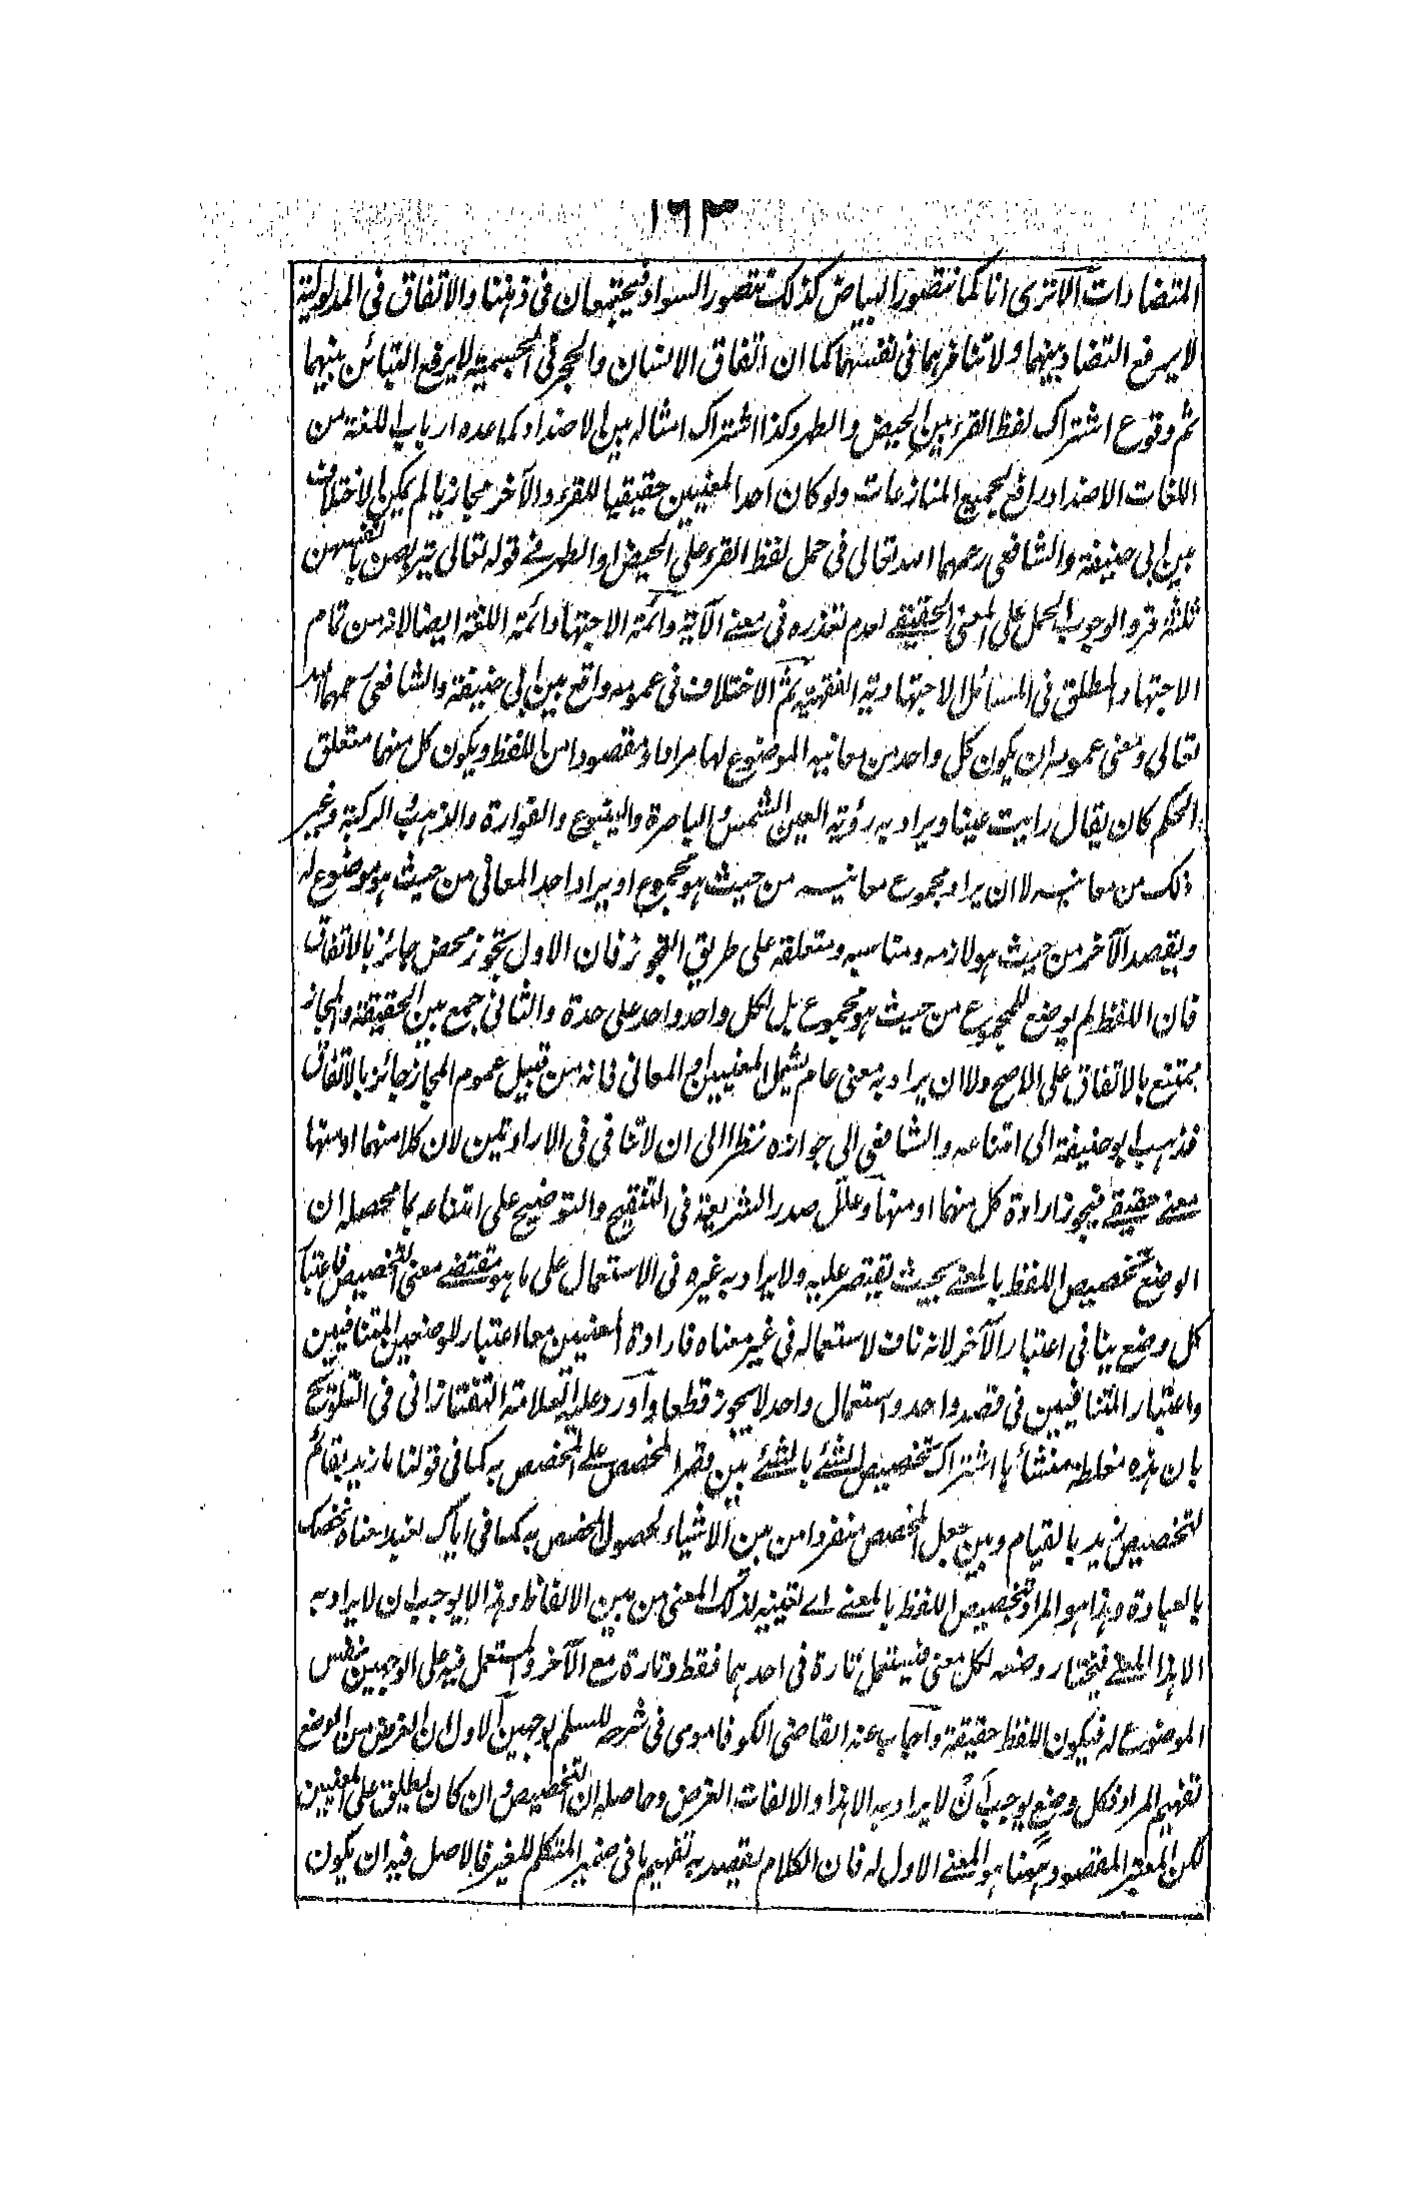 ١٦٣
المتضادات الا ترى انا كما نتصور البياض كذلك نتصور السواد فيجتمعان فى ذهننا والاتفاق فى المدلولية
لا يرفع التضاد بينهما ولا تنافرهما فى نفسهما كما ان اتفاق الانسان والحجر فى الجسمية لا يرفع التبائن بينهما
ثم وقوع اشتراك لفظ القرء بين الحيض والطهر وكذا اشتراك امثاله بين الاضداد كما عده ارباب اللغة من
اللغات الاضداد رافع لجميع المنازعات ولو كان احد المعنيين حقيقيا للقرء والآخر مجازيا لم يكن الاختلاف
بين ابى حنيفة والشافعى رحمهما الله تعالى فى حمل لفظ القرء على الحيض او الطهر فے قوله تعالى يتربصن بانفسهن
ثلثة قروء لوجوب الحمل على المعنى الحقيقے لعدم تعذره فى معنے الآية وائمة الاجتهاد ائمة اللغة ايضا لانه من تمام
الاجتهاد المطلق فى المسائل الاجتهادية الفقهية ثم الاختلاف فى عمومه واقع بين ابى حنيفة والشافعى رحمهما الله
تعالى ومعنى عمومه ان يكون كل واحد من معانيه الموضوع لها مرادا ومقصودا من اللفظ ويكون كل منها متعلق
الحكم كان يقال رايت عينا ويراد به رؤية العين الشمس والباصرة والينبوع والفوارة والذهب والركبة وغير
ذلك من معانيه لا ان يراد مجموع معانيه من حيث هو مجموع او يراد احد المعانى من حيث هو موضوع له
ويقصد الآخر من حيث هو لازمه ومناسبه ومتعلقه على طريق التجوز فان الاول تجوز محض جائز بالاتفاق
فان اللفظ لم يوضع للمجموع من حيث هو مجموع بل لكل واحد واحد على حدة والثانى جمع بين الحقيقة والمجاز
يمتنع بالاتفاق على الاصح ولا ان يراد به معنى عام يشمل المعنيين او المعانى فانه من قبيل عموم المجاز جائز بالاتفاق
فذهب ابو حنيفة الى امتناعه والشافعى الى جوازه نظرا الى ان لا تنافى فى الارادتين لان كلا منهما او منها
معنے حقيقے فيجوز ارادة كل منهما او منها وعلل صدر الشريعة فى التنقيح والتوضيح على امتناعه بما محصله ان
الوضع تخصيص اللفظ بالمعنے بحيث يقتصر عليه ولا يراد به غيره فى الاستعمال على ما هو مقتضے معنى التخصيص فاعتبار
كل وضع ينافى اعتبار الآخر لانه ناف لاستعماله فى غير معناه فارادة المعنيين معا اعتبار للوضعين المتنافيين
واعتبار المتنافيين فى قصد واحد واستعمال واحد لا يجوز قطعا واورد عليه العلامة التفتازانى فى التلويح
بان هذه مغلطة منشأها اشتراك تخصيص الشئے بالشئے بين قصر المخصص على المخصص به كما فى قولنا ما زيد بقائم
لتخصيص زيد بالقيام وبين جعل المخصص منفردا من بين الاشياء لحصول المخصص به كما فى اياك نعبد معناه نخصك
بالعبادة وهذا هو المراد بتخصيص اللفظ بالمعنے اے تعيينه لذلك المعنى من بين الالفاظ وهذا لا يوجب ان لا يراد به
الا هذا المعنے فيختار وضعه لكل معنى فيستعمل تارة فى احدهما فقط وتارة مع الآخر والمستعمل فيه على الوجهين نفس
الموضوع له فيكون اللفظ حقيقة واجاب عنه القاضى الكوفاموى فى شرحه للسلم بوجهين الاول ان الغرض من الوضع
تفهيم المراد فكل وضع يوجب أن لا يراد به الا هذا والا لفات الغرض وحاصله ان التخصيص وان كان يطلق على المعنيين
لكن المعتبر المقصود ههنا هو المعنے الاول له فان الكلام يقصد به تفهيم ما فى ضمير المتكلم للغير فالاصل فيه ان يكون